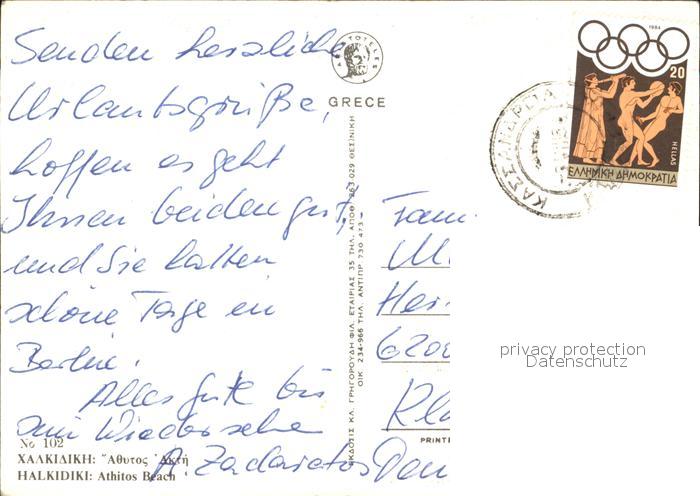 Senden herzliche
Urlaubsgrüße,
hoffen es geht
Ihnen beiden gut,
und Sie hatten
schöne Tage in
Berlin.
Alles gute bis
zum Wiedersehen
A. Zachariatos
No 102
ΧΑΛΚΙΔΙΚΗ: Ἄθυτος Ἀκτή
HALKIDIKI: Athitos Beach
ARISTOTELES
GRECE
ΕΚΔΟΣΙΣ ΚΛ. ΓΡΗΓΟΡΟΥΔΗ ΦΙΛ. ΕΤΑΙΡΙΑΣ 35 ΤΗΛ. ΑΠΟΘ. 263.029 ΘΕΣ/ΝΙΚΗ
ΟΙΚ 234-966 ΤΗΛ. ΑΝΤΙΠΡ 730 473
1984
20
HELLAS
ΕΛΛΗΝΙΚΗ ΔΗΜΟΚΡΑΤΙΑ
ΚΑΣΣΑΝΔΡΕΙΑ
Fam
620
PRINT
privacy protection
Datenschutz